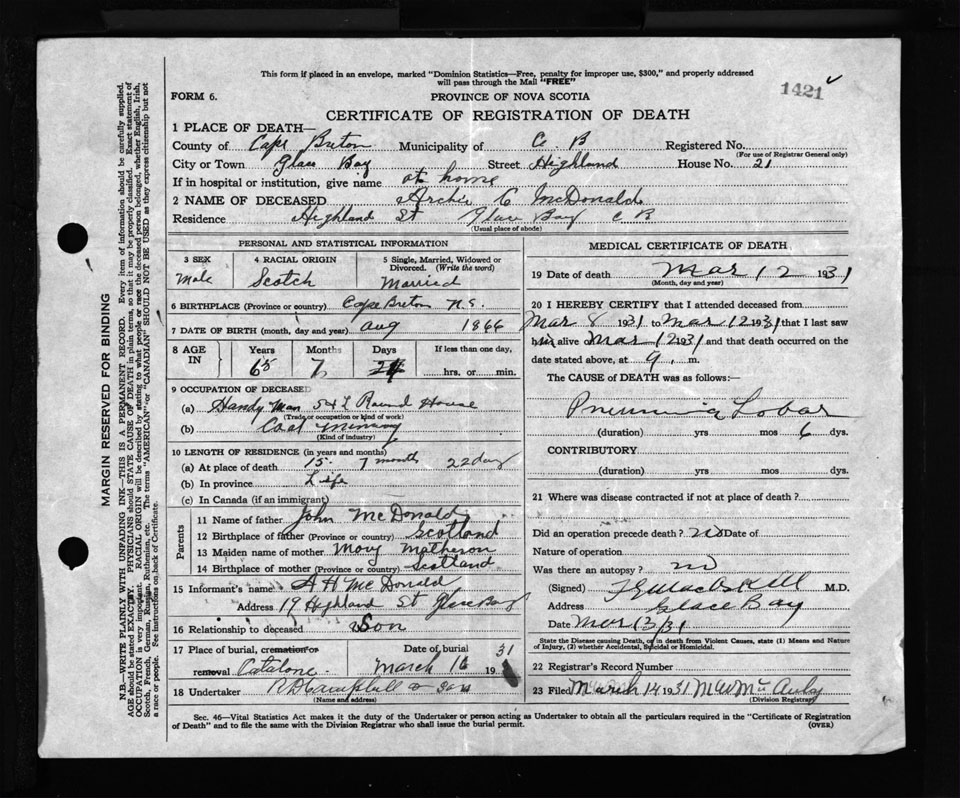 This form if placed in an envelope, marked "Dominion Statistics—Free, penalty for improper use, $300," and properly addressed
will pass through the Mail "FREE"
1421
FORM 6.
PROVINCE OF NOVA SCOTIA
CERTIFICATE OF REGISTRATION OF DEATH
1 PLACE OF DEATH—
County of Cape Breton Municipality of C. B Registered No.
(For use of Registrar General only)
City or Town Glace Bay Street Highland House No. 21
If in hospital or institution, give name at home
2 NAME OF DECEASED Archie C McDonald
Residence Highland St Glace Bay C B
(Usual place of abode)
PERSONAL AND STATISTICAL INFORMATION
3 SEX 4 RACIAL ORIGIN 5 Single, Married, Widowed or Divorced. (Write the word)
Male Scotch Married
6 BIRTHPLACE (Province or country) Cape Breton N.S.
7 DATE OF BIRTH (month, day and year) Aug 1866
8 AGE IN Years Months Days If less than one day,
65 7 24 hrs. or min.
9 OCCUPATION OF DECEASED
(a) Handy Man S & L Round House
(Trade, occupation or kind of work)
(b) Coal Mining
(Kind of industry)
10 LENGTH OF RESIDENCE (in years and months)
(a) At place of death 15 7 months 22 day
(b) In province Life
(c) In Canada (if an immigrant)
Parents
11 Name of father John McDonald
12 Birthplace of father (Province or country) Scotland
13 Maiden name of mother Mary Matheson
14 Birthplace of mother (Province or country) Scotland
15 Informant's name A H McDonald
Address 19 Highland St Glace Bay
16 Relationship to deceased Son
17 Place of burial, cremation or removal Catalone
Date of burial March 16 1931
18 Undertaker R D Campbell & Son
(Name and address)
MEDICAL CERTIFICATE OF DEATH
19 Date of death Mar 12 1931
(Month, day and year)
20 I HEREBY CERTIFY that I attended deceased from
Mar 8 1931 to Mar 12 1931 that I last saw
him alive Mar 12 1931 and that death occurred on the
date stated above, at 9 . m.
The CAUSE of DEATH was as follows:
Pneumonia Lobar
(duration) yrs mos 6 dys.
CONTRIBUTORY
(duration) yrs mos dys.
21 Where was disease contracted if not at place of death?
Did an operation precede death? no Date of
Nature of operation
Was there an autopsy? no
(Signed) M.D.
Address Glace Bay
Date Mar 13/31
State the Disease causing Death, or in death from Violent Causes, state (1) Means and Nature
of Injury, (2) whether Accidental, Suicidal or Homicidal.
22 Registrar's Record Number
23 Filed March 14 1931
(Division Registrar)
Sec. 46—Vital Statistics Act makes it the duty of the Undertaker or person acting as Undertaker to obtain all the particulars required in the "Certificate of Registration
of Death" and to file the same with the Division Registrar who shall issue the burial permit.
(OVER)
MARGIN RESERVED FOR BINDING
N.B.—WRITE PLAINLY WITH UNFADING INK—THIS IS A PERMANENT RECORD. Every item of information should be carefully supplied.
AGE should be stated EXACTLY. PHYSICIANS should STATE CAUSE OF DEATH in plain terms, so that it may be properly classified. Exact statement of
OCCUPATION is very important. RACIAL ORIGIN will be described by stating to what people or race the deceased person belonged, whether English, Irish,
Scotch, French, German, Russian, Ruthenian, etc. The terms "AMERICAN" or "CANADIAN" SHOULD NOT BE USED as they express citizenship but not
a race or people. See instructions on back of Certificate.